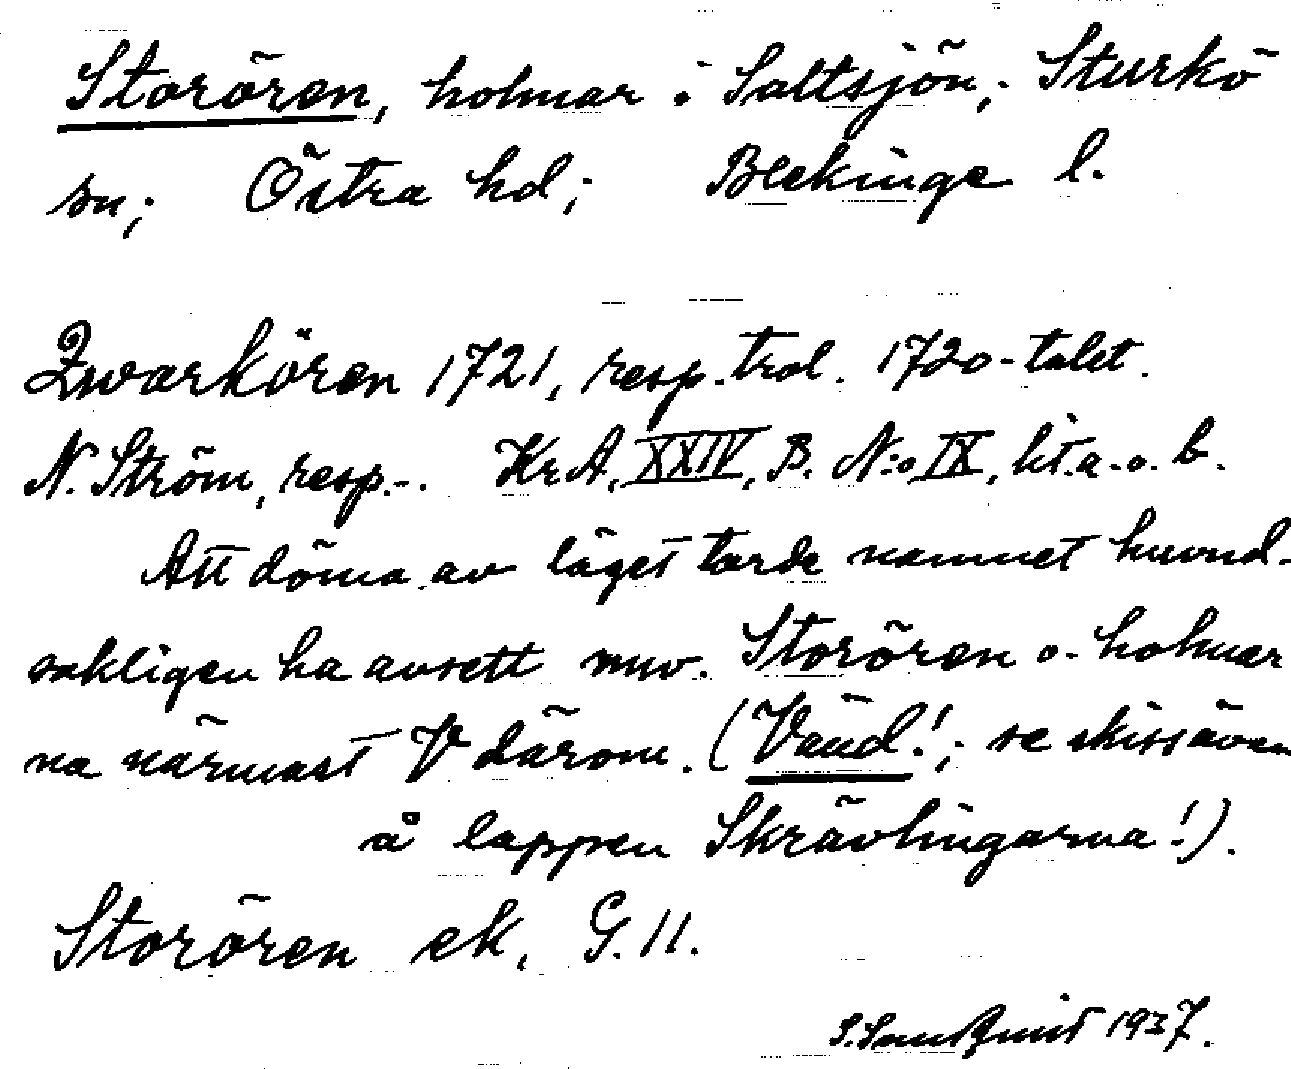 Storören, holmar i Saltsjön, Sturkö
sn; Östra hd; Blekinge l.
Qwarkören 1721, resp. trol. 1720-talet.
N. Ström, resp.-. KrA, XXIV, B. N:o IX, lit.a.o.b.
Att döma av läget torde namnet huvud-
sakligen ha avsett nuv. Storören o. holmar
na närmast V därom. (Vänd!; se skiss även
å lappen Skrävlingarna!).
Storören ek. G. 11.
1937.